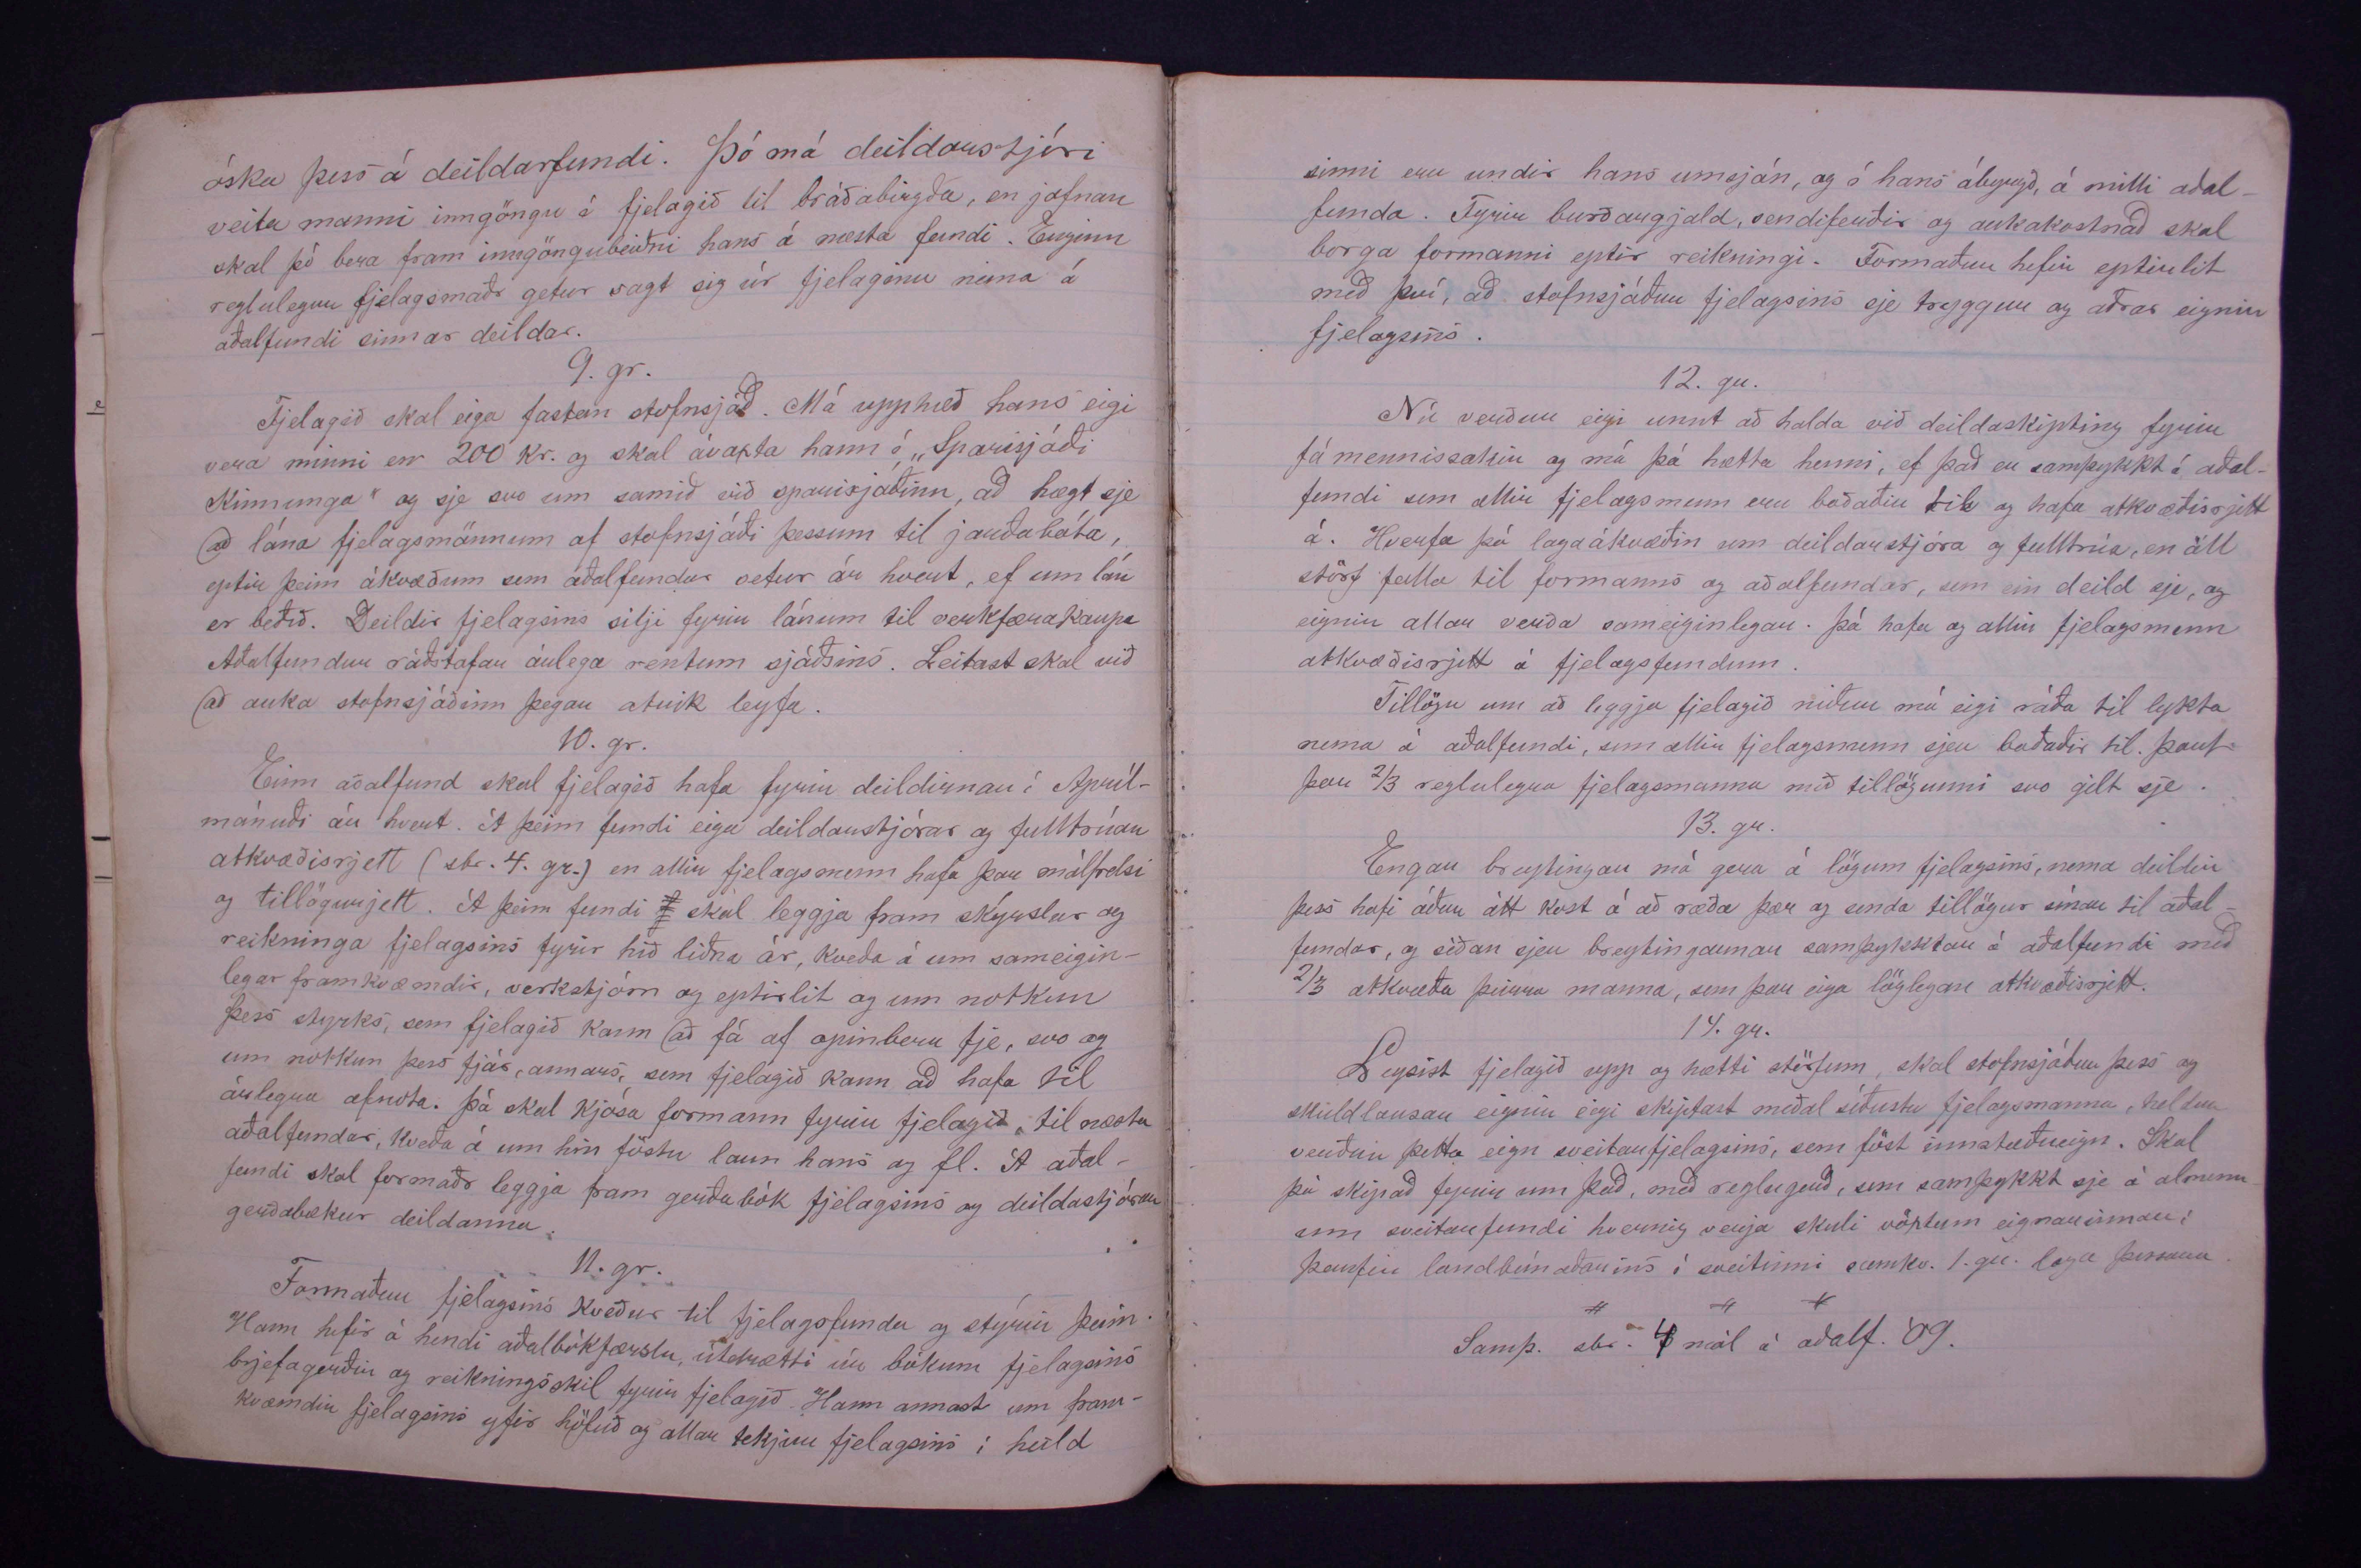 óska þess á deildarfundi. Þó má deildarstjóri
veita manni inngöngu í fjelagið til bráðabirgða, en jafnan
skal þó bera fram inngöngubeiðni hans á næsta fundi. Enginn
reglulegur fjelagsmaðr getur sagt sig úr fjelaginu nema á
aðalfundi sinnar deildar.
9. gr.
Fjelagið skal eiga fastan stofnsjóð. Má upphæð hans eigi
vera minni en 200 kr. og skal ávaxta hann í „Sparisjóði
Kinnunga" og sje svo um samið við sparisjóðinn, að hægt sje
að lána fjelagsmönnum af stofnsjóði þessum til jarðabóta,
eptir þeim ákvæðum sem aðalfundur setur ár hvert, ef um lán
er beðið. Deildir fjelagsins sitji fyrir lánum til verkfærakaupa
Aðalfundur ráðstafar árlega rentum sjóðsins. Leitast skal við
að auka stofnsjóðinn þegar atvik leyfa.
10. gr.
Einn aðalfund skal fjelagið hafa fyrir deildirnar í Apríl-
mánuði ár hvert. Á þeim fundi eiga deildarstjórar og fulltrúar
atkvæðisrjett (sbr. 4. gr.) en allir fjelagsmenn hafa þar málfrelsi
og tillögurjett. Á þeim fundi skal leggja fram skýrslur og
reikninga fjelagsins fyrir hið liðna ár, kveða á um sameigin-
legar framkvæmdir, verkstjórn og eptirlit og um notkun
þess styrks, sem fjelagið kann að fá af opinberu fje, svo og
um notkun þess fjár, annars, sem fjelagið kann að hafa til
árlegra afnota. Þá skal kjósa formann fyrir fjelagið, til næsta
aðalfundar, kveða á um hin föstu laun hans og fl. Á aðal-
fundi skal formaðr leggja fram gerðabók fjelagsins og deildastjórar
gerðabækur deildanna.
11. gr.
Formaður fjelagsins kveður til fjelagsfunda og stýrir þeim.
Hann hefir á hendi aðalbókfærslu, útdrætti úr bókum fjelagsins
brjefagerðir og reikningsskil fyrir fjelagið. Hann annast um fram-
kvæmdir fjelagsins yfir höfuð og allar tekjur fjelagsins í heild
sinni eru undir hans umsján, og á hans ábyrgð, á milli aðal-
funda. Fyrir burðargjald, sendiferðir og aukakostnað skal
borga formanni eptir reikningi. Formaður hefir eptirlit
með því, að stofnsjóður fjelagsins sje tryggur og aðrar eignir
fjelagsins.
12. gr.
Nú verður eigi unnt að halda við deildaskipting fyrir
fámennissakir og má þá hætta henni, ef það er samþykkt á aðal-
fundi sem allir fjelagsmenn eru boðaðir til og hafa atkvæðisrjett
á. Hverfa þá lagaákvæðin um deildarstjóra og fulltrúa, en öll
störf falla til formanns og aðalfundar, sem ein deild sje, og
eignir allar verða sameiginlegar. Þá hafa og allir fjelagsmenn
atkvæðisrjett á fjelagsfundum.
Tillögu um að leggja fjelagið niður má eigi ráða til lykta
nema á aðalfundi, sem allir fjelagsmenn sjeu boðaðir til. Þarf
þar 2/3 reglulegra fjelagsmanna með tillögunni svo gilt sje.
13. gr.
Engar breytingar má gera á lögum fjelagsins, nema deildir
þess hafi áður átt kost á að ræða þær og senda tillögur sínar til aðal-
fundar, og síðan sjeu breytingarnar samþykktar á aðalfundi með
2/3 atkvæða þeirra manna, sem þar eiga löglegan atkvæðisrjett.
14. gr.
Leysist fjelagið upp og hætti störfum, skal stofnsjóður þess og
skuldlausar eignir eigi skiptast meðal síðustu fjelagsmanna, heldur
verður þetta eign sveitarfjelagsins, sem föst innstæðueign. Skal
þá skipað fyrir um það, með reglugerð, sem samþykkt sje á almenn-
um sveitarfundi hvernig verja skuli vöxtum eignarinnar í
þarfir landbúnaðarins í sveitinni samkv. 1. gr. laga þessara.
Samþ. sbr. 4 mál á aðalf. '09.